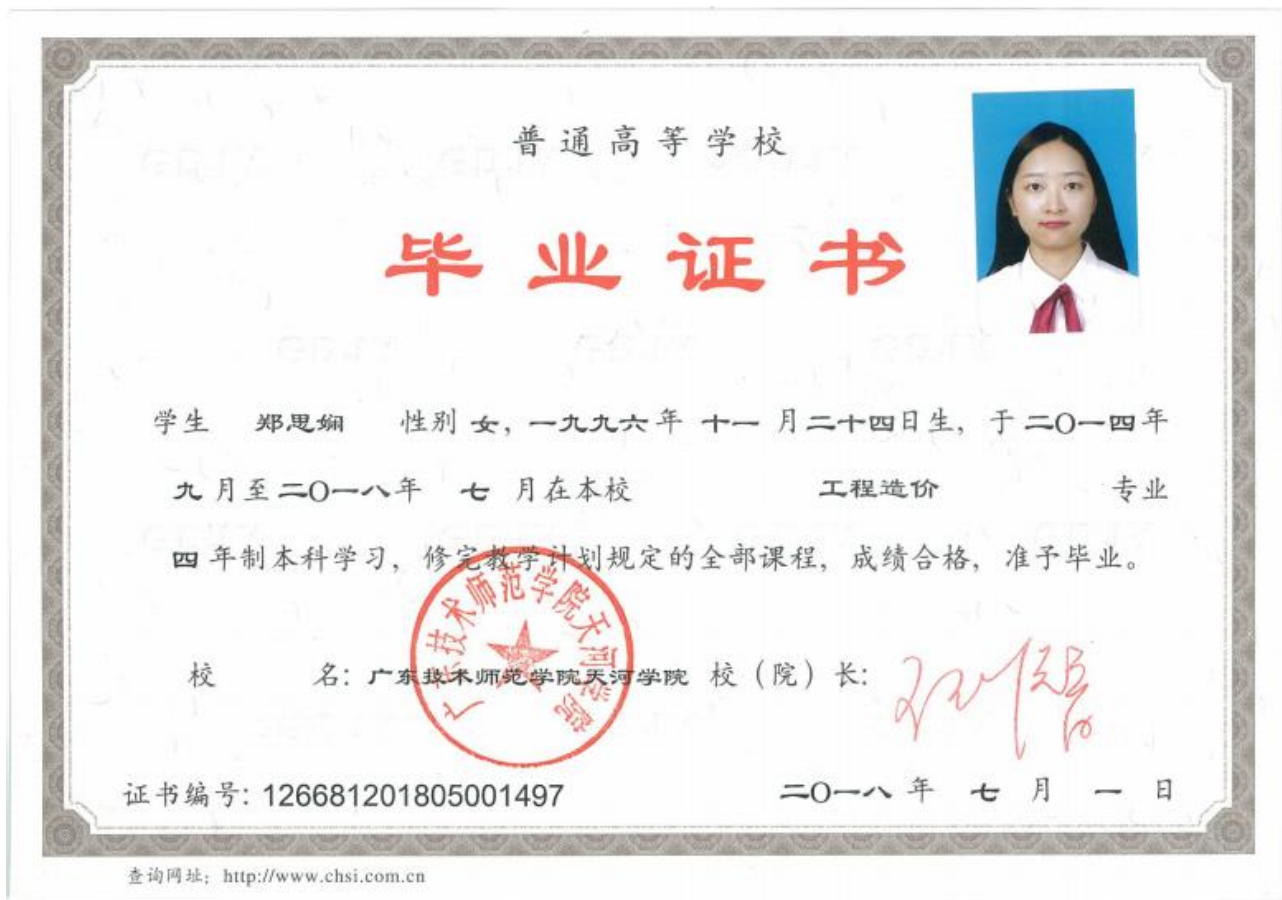 普通高等学校
毕业证书
学生 郑思娴 性别 女，一九九六年 十一 月二十四日生，于二〇一四年
九月至二〇一八年 七 月在本校 工程造价 专业
四 年制本科学习，修完教学计划规定的全部课程，成绩合格，准予毕业。
广东技术师范学院天河学院
校 名：广东技术师范学院天河学院 校（院）长：
证书编号：126681201805001497 二〇一八 年 七 月 一 日
查询网址：http://www.chsi.com.cn